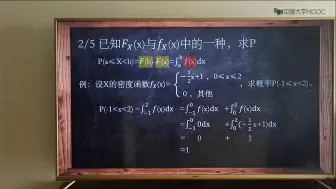 中国大学MOOC
2/5 已知F_X(x)与f_X(x)中的一种，求P
P(a≤X<b)=F(b)-F(a)=∫_a^b f(x)dx
例：设X的密度函数f_X(x)={ -1/2x+1，0≤x≤2
0，其他 ，求概率P(-1≤x<2)。
P(-1<x<2)=∫_{-1}^2 f(x)dx =∫_{-1}^0 f(x)dx +∫_0^2 f(x)dx
=∫_{-1}^0 0dx +∫_0^2(-1/2x+1)dx
= 0 + 1
=1